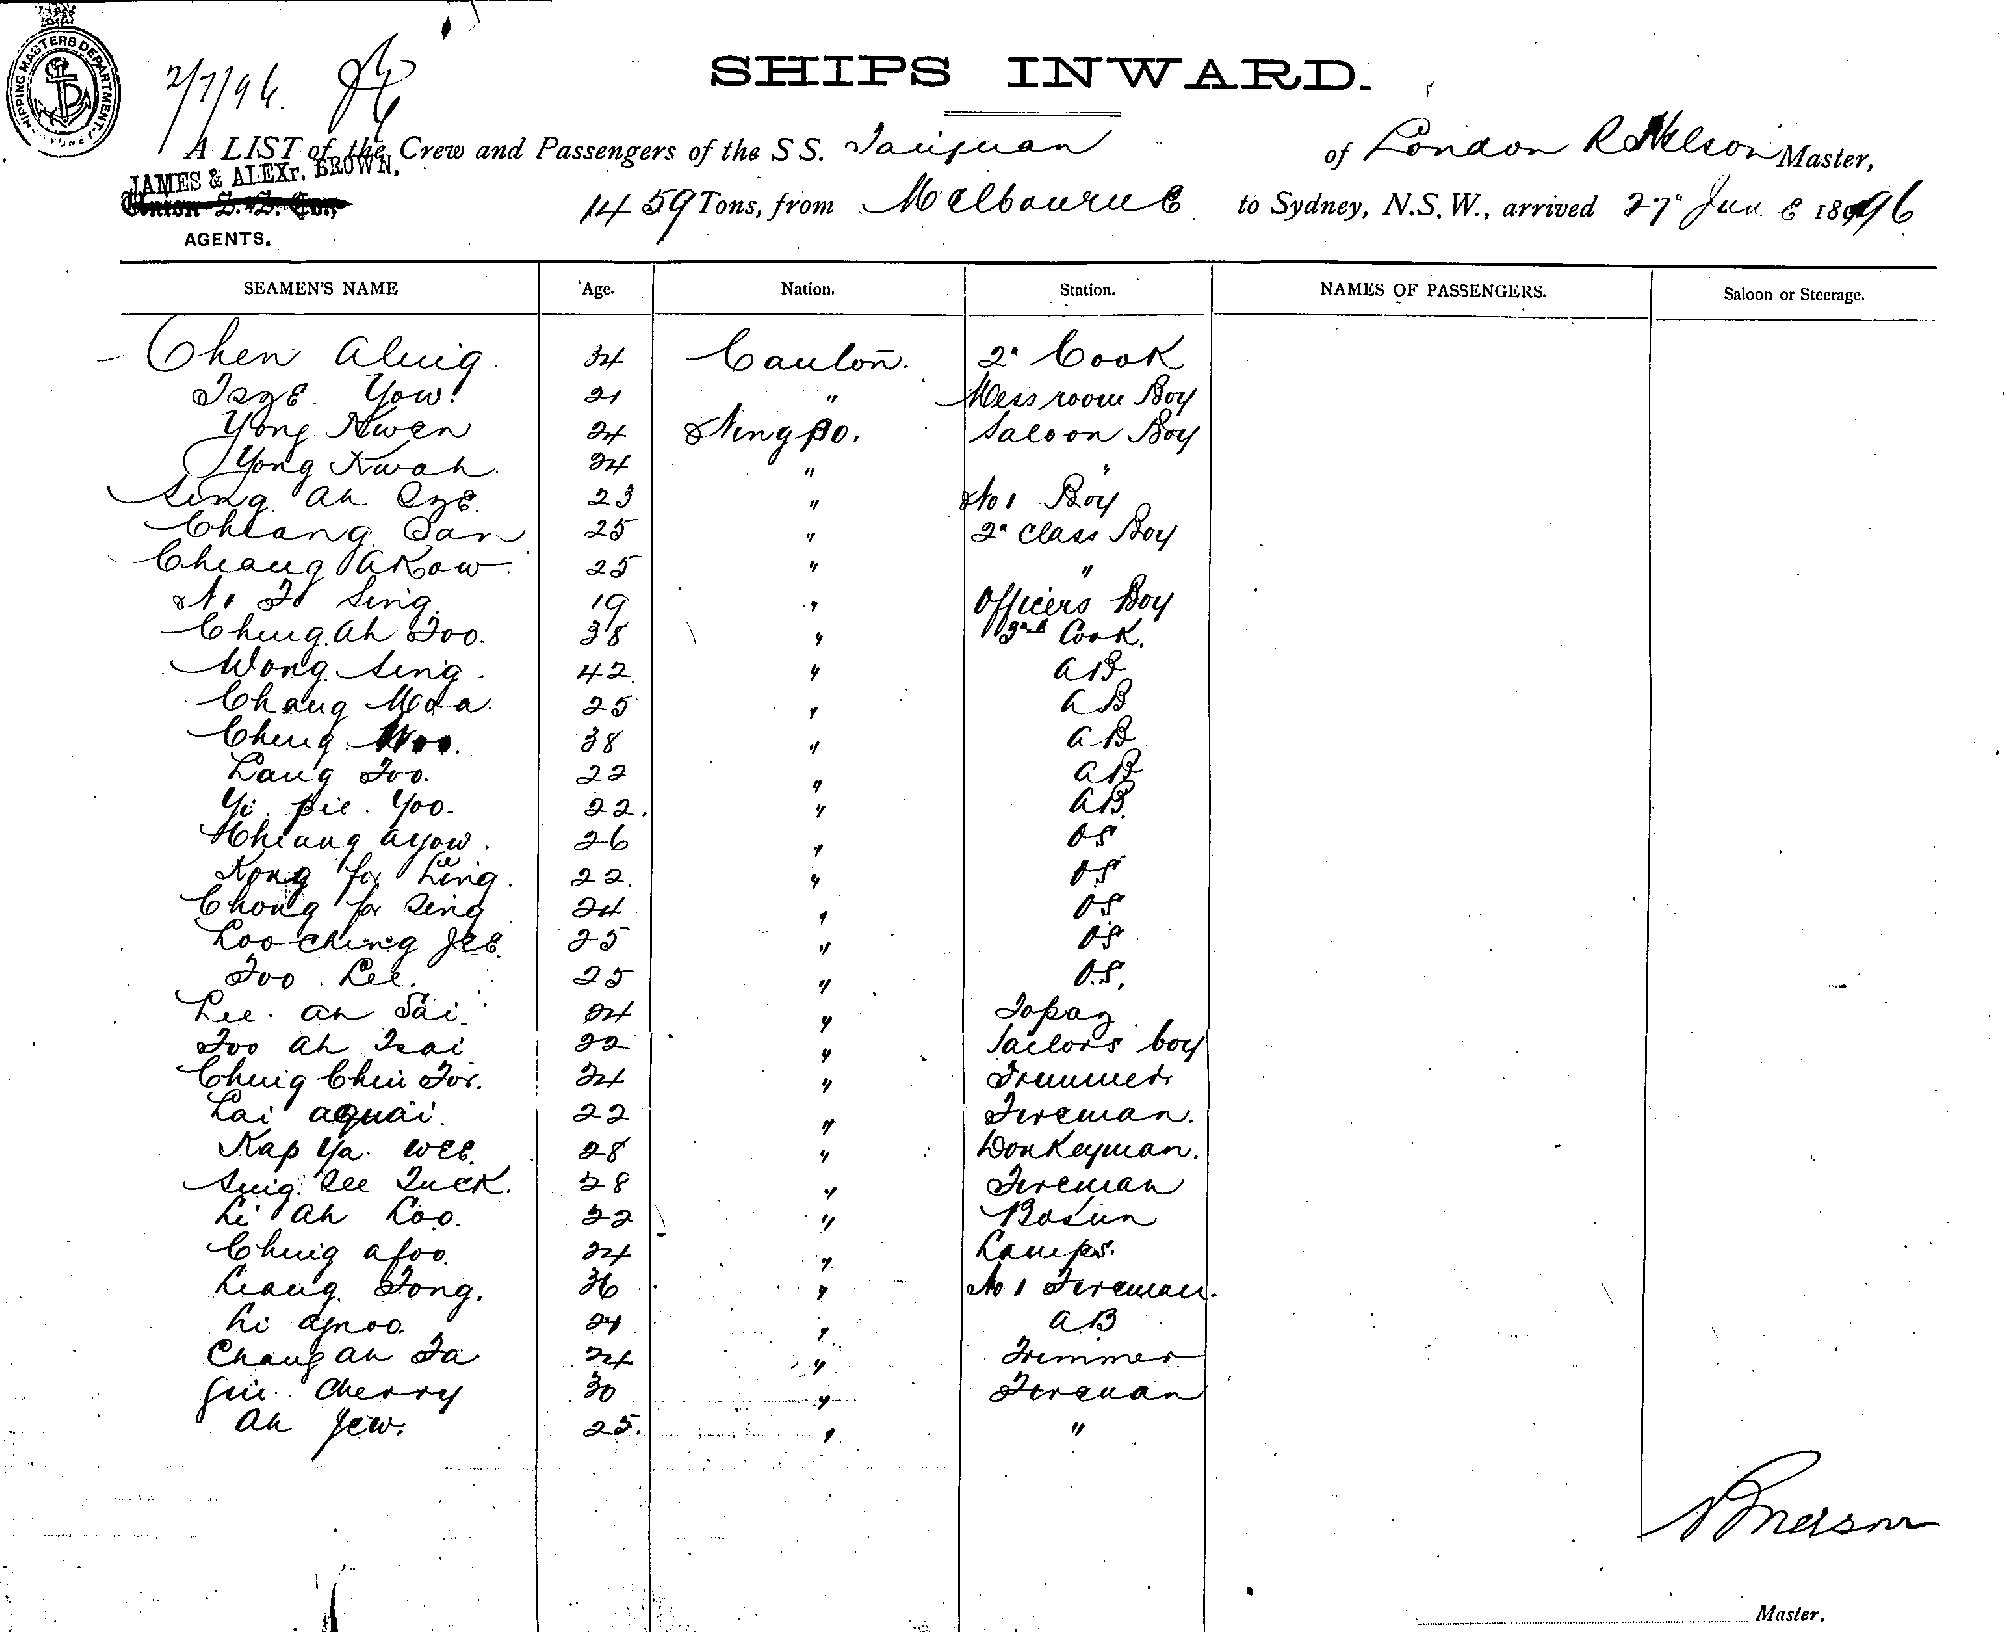 SHIPPING MASTERS DEPARTMENT
2/7/96.
SHIPS INWARD.
A LIST of the Crew and Passengers of the SS. Taiyuan of London R Nelson Master,
JAMES & ALEXr. BROWN,
Union S. S. Coy,
AGENTS.
1459 Tons, from Melbourne to Sydney, N.S.W., arrived 27" June 1896
SEAMEN'S NAME Age. Nation. Station. NAMES OF PASSENGERS. Saloon or Steerage.
Chen Aluig. 34 Canton. 2" Cook
Tsze Yow. 21 " Mess room Boy
Yong Kwen 24 Ningpo. Saloon Boy
Yong Kwah. 24 " "
Sing Ah Sze. 23 " No 1 Boy
Cheang San 25 " 2" Class Boy
Cheang AKow. 25 " "
No To Sing. 19 " Officers Boy
Ching Ah Foo. 38 " 3rd Cook.
Wong Sing. 42 " AB
Chang Maa. 25 " AB
Ching Woo. 38 " AB
Lang Foo. 22 " AB
Yi pie Yoo. 22. " AB.
Cheang Ayow. 26 " OS
Kong for Ling. 22. " OS
Chong for Sing 24 " OS
Loo Ching Jee. 25 " OS
Foo Lee. 25 " O.S.
Lee Ah Sai. 24 " Topaz
Foo Ah Tsai 22 " Sailors boy
Ching Chin For. 24 " Trimmer
Lai Aquai. 22 " Fireman.
Kap Ya Wee. 28 " Donkeyman.
Sing See Tuck. 28 " Fireman
Li Ah Loo. 22 " Bosun
Ching Afoo. 24 " Lamps.
Leang Fong. 36 " No 1 Fireman.
Li 24 " AB
Chang Ah Ta 24 " Trimmer
Cherry 30 " Fireman
Ah Jew. 25. " "
Master.